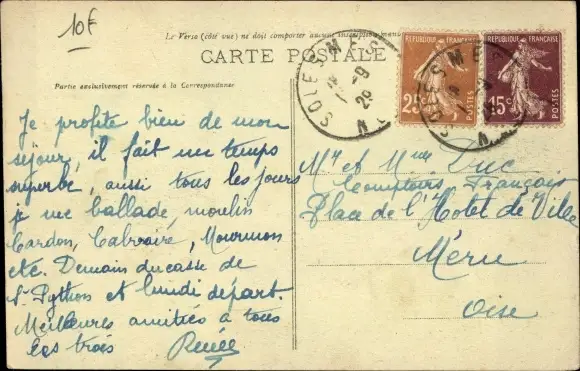 10F
Le Verso (côté vue) ne doit comporter aucune
CARTE POSTALE
Partie exclusivement réservée à la Correspondance
SOLESMES
9
28
N
REPUBLIQUE FRANÇAISE
25c
POSTES
SOLESMES
REPUBLIQUE FRANÇAISE
15c
POSTES
Je profite bien de mon
séjour, il fait un temps
superbe, aussi tous les jours
je me ballade, moulin
Cardon,
etc. Demain ducasse de
St Python et lundi départ.
Meilleures amitiés à tous
les trois Renée
Mr et Mme Duc
Comptoirs Français
Place de l'Hotel de Ville
Méru
Oise